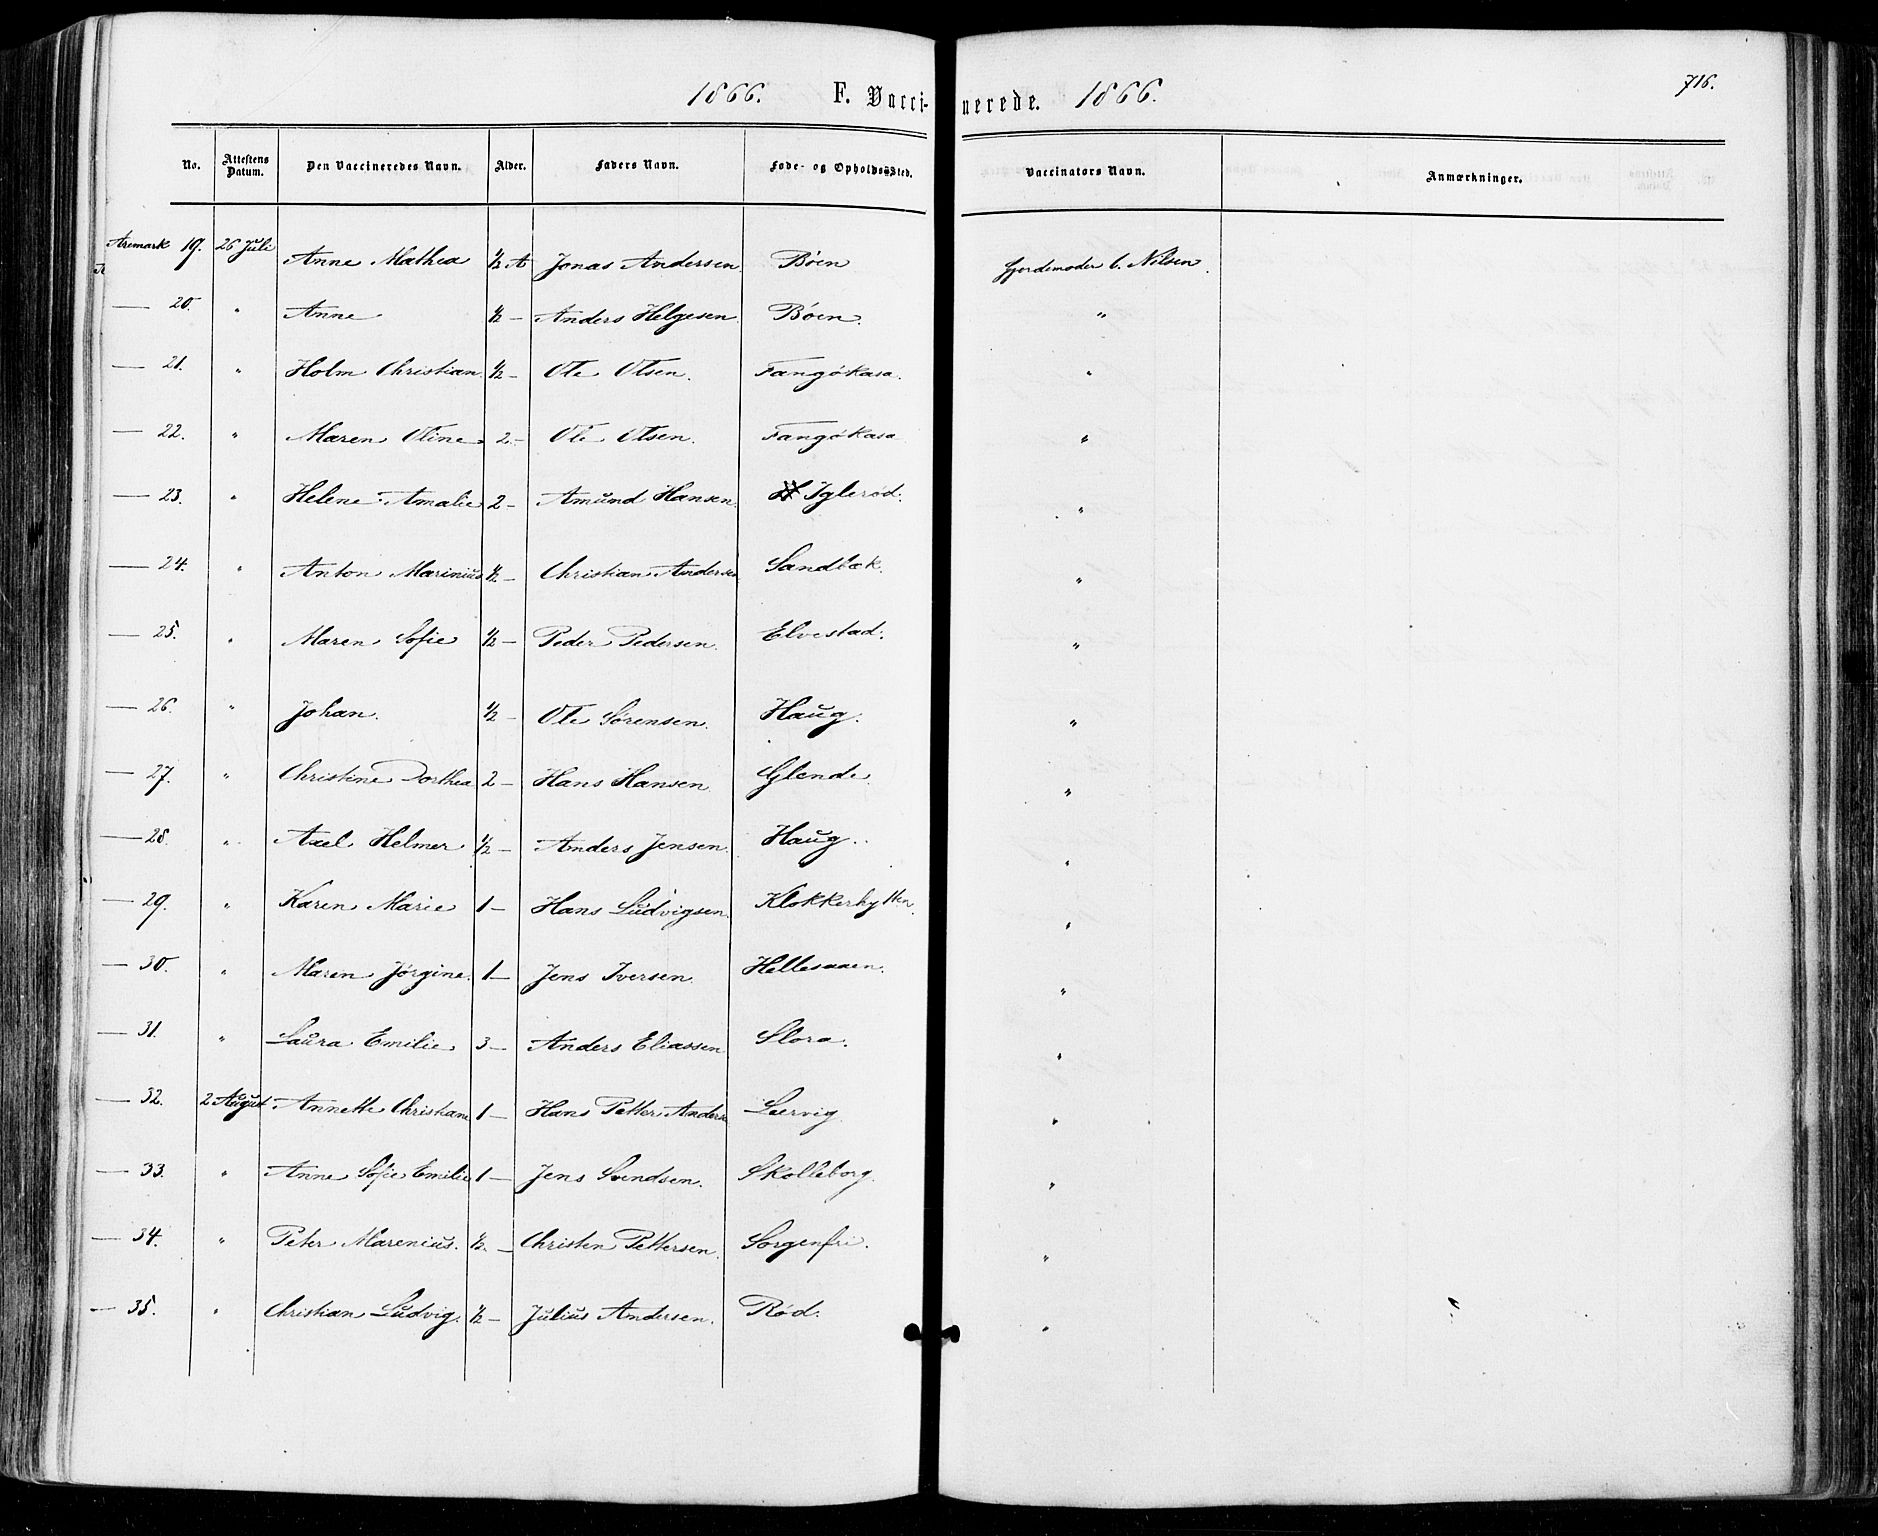 1866. F. Vacci- nerede. 1866. 716.
No. Attestens Datum. Den Vaccineredes Navn. Alder. Faders Navn. Føde- og Opholdssted. Vaccinators Navn. Anmærkninger.
Aremark 19. 26 Juli Anne Mathea ½ A Jonas Andersen Böen Gjordemoder C. Nilsen.
— 20. " Anne ½ — Anders Helgesen. Böen. "
— 21. " Holm Christian. ½ — Ole Olsen. Fangökasa. "
— 22. " Maren Oline 2 — Ole Olsen. Fangökasa "
— 23. " Helene Amalie 2 — Amund Hansen. Iglerød. "
— 24. " Anton Marinius ½ — Christian Andersen Sandbæk. "
— 25. " Maren Sofie ½ — Peder Pedersen. Elvestad. "
— 26. " Johan. ½ — Ole Sørensen. Haug. "
— 27. " Christine Dorthea 2 — Hans Hansen. Glende. "
— 28. " Axel Helmer ½ — Anders Jensen. Haug. "
— 29. " Karen Marie 1 — Hans Ludvigsen. Klokkerhytten. "
— 30. " Maren Jørgine. 1 — Jens Iversen. Hellesaaen. "
— 31. " Laura Emilie 3 — Anders Eliassen Slora. "
— 32. 2 August Annette Christiane 1 — Hans Petter Anders Lervig. "
— 33. " Anne Sofie Emilie 1 — Jens Svendsen. Skolleborg. "
— 34. " Peter Marenius. ½ — Christen Pettersen. Sorgenfri. "
— 35. " Christian Ludvig. ½ — Julius Andersen. Rød. "